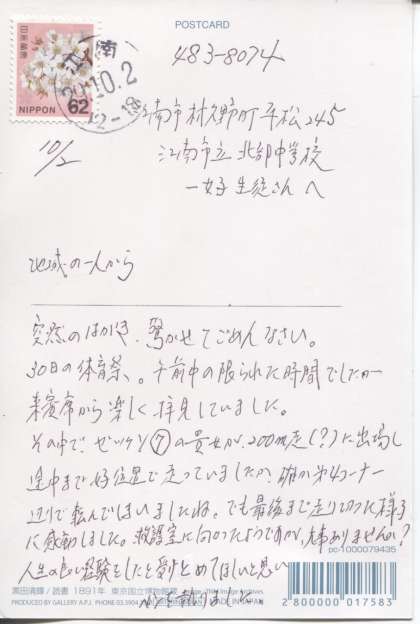 POSTCARD
日本郵便
NIPPON 62
江南
10.2
12-18
483-8074
10/2
南市 村久野町 平松 245
江南市立 北部中学校
一女子生徒さんへ
地域の一人から
突然のはがき、驚かせてごめんなさい。
30日の体育祭、。午前中の限られた時間でしたが
来賓席から楽しく拝見していました。
その中で、ゼッケン⑦の貴女が、200m走(?)に出場し
途中まで好位置で走っていましたが、確か第4コーナー
辺りで転んでしまいましたね。でも最後まで走り切った様子
に感動しました。救護室に向かったようですが、大事ありませんか?
pc-1000079435
人生の良い経験をしたと受けとめてほしいと思い
黒田清輝/読書 1891年 東京国立博物館蔵
PRODUCED BY GALLERY A.P.J. PHONE 03.5904 MADE IN JAPAN
2 800000 017583